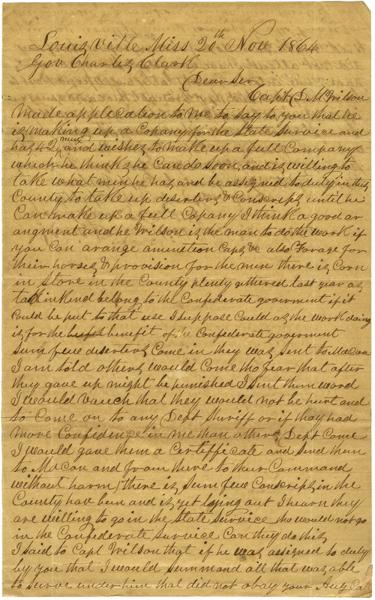 Louisville Miss 20th Nov 1864
Gov Charles Clark
Dear Sir
Capt S. M Wilson
made application to me to say to you that he
is making up a Copany for the State Service and
has 42 men and wishes to make up a full Company
which he thinks he can do soon, and is willing to
take what men he has and be assigned to duty in this
County to take up deserters & Conscripts until he
can make up a full Copany I think a good ar
angment and he Wilson is the man to do the work if
you can arange amunition Caps & also Forage for
their horses & provision for the men there is Corn
in Store in the County plenty gthered last year as
tax in kind belong to the Confederate goverment if it
could be put to that use I suppose could as the work doing
is for the benefit of the Confederate goverment
Sum few deserters Come in they was Sent to Macon
I am told others would Come tho fear that after
they gave up might be punished I Sent them word
I would vouch that they would not be hurt and
to Come on to any Dept Shriff or if they had
more Confidence in me than other Dept Come
I would gave them a Certifficate and Send them
to Macon and from there to their Command
without harm there is Sum few Conscripts in the
County have ben and is yet laying out I hearn they
are willing to go in the State Service who would not go
in the Confederate Service Can they do this
I said to Capt Wilson that if he was assigned to duty
by you that I would Summand all that was able
to Surve under him that did not obay your Aug Cal